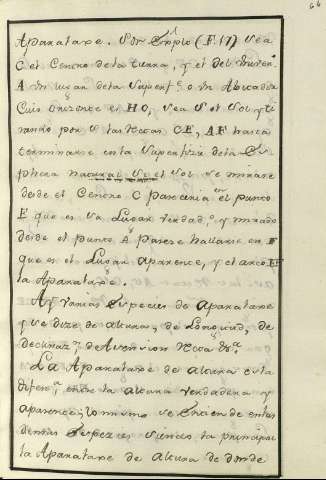 66
Aparalaxe. Por Exmplo (F. 17) Sea
C el Centro de la tierra, y el del
A un lugar de la Superf.e o un Abitador
Cuio Orizonte el HO, Sea S el Sol y ti
rando por S las Rectas CE, AF hasta
terminarse en la Superfizie de la Es
phera natural Si el Sol se mirase
desde el Centro C pareceria en el punto
E que es su Lugar Verdad.o y mirado
desde el punto A parese hallarse en F
que es el Lugar aparente, y el arco EF
la Aparalaxe.
Ay varias Espezies de aparalaxe
que dize de altura, de Longitud, de
declinaz.n de Asension Recta &.a
La Aparalaxe de altura es la
diferen.a entre la altura verdadera y
aparente; lo mismo se entiende en las
demas Espezies siendo la principal
la Aparalaxe de altura de donde